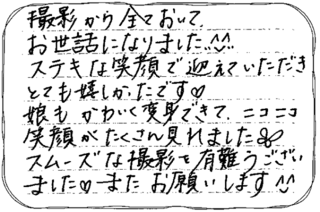 撮影から全ておいて、
お世話になりました。^^
ステキな笑顔で迎えていただき
とても嬉しかったです♡
娘もかわいく変身できて、ニコニコ
笑顔がたくさん見れました
スムーズな撮影を有難うござい
ました♡またお願いします^^